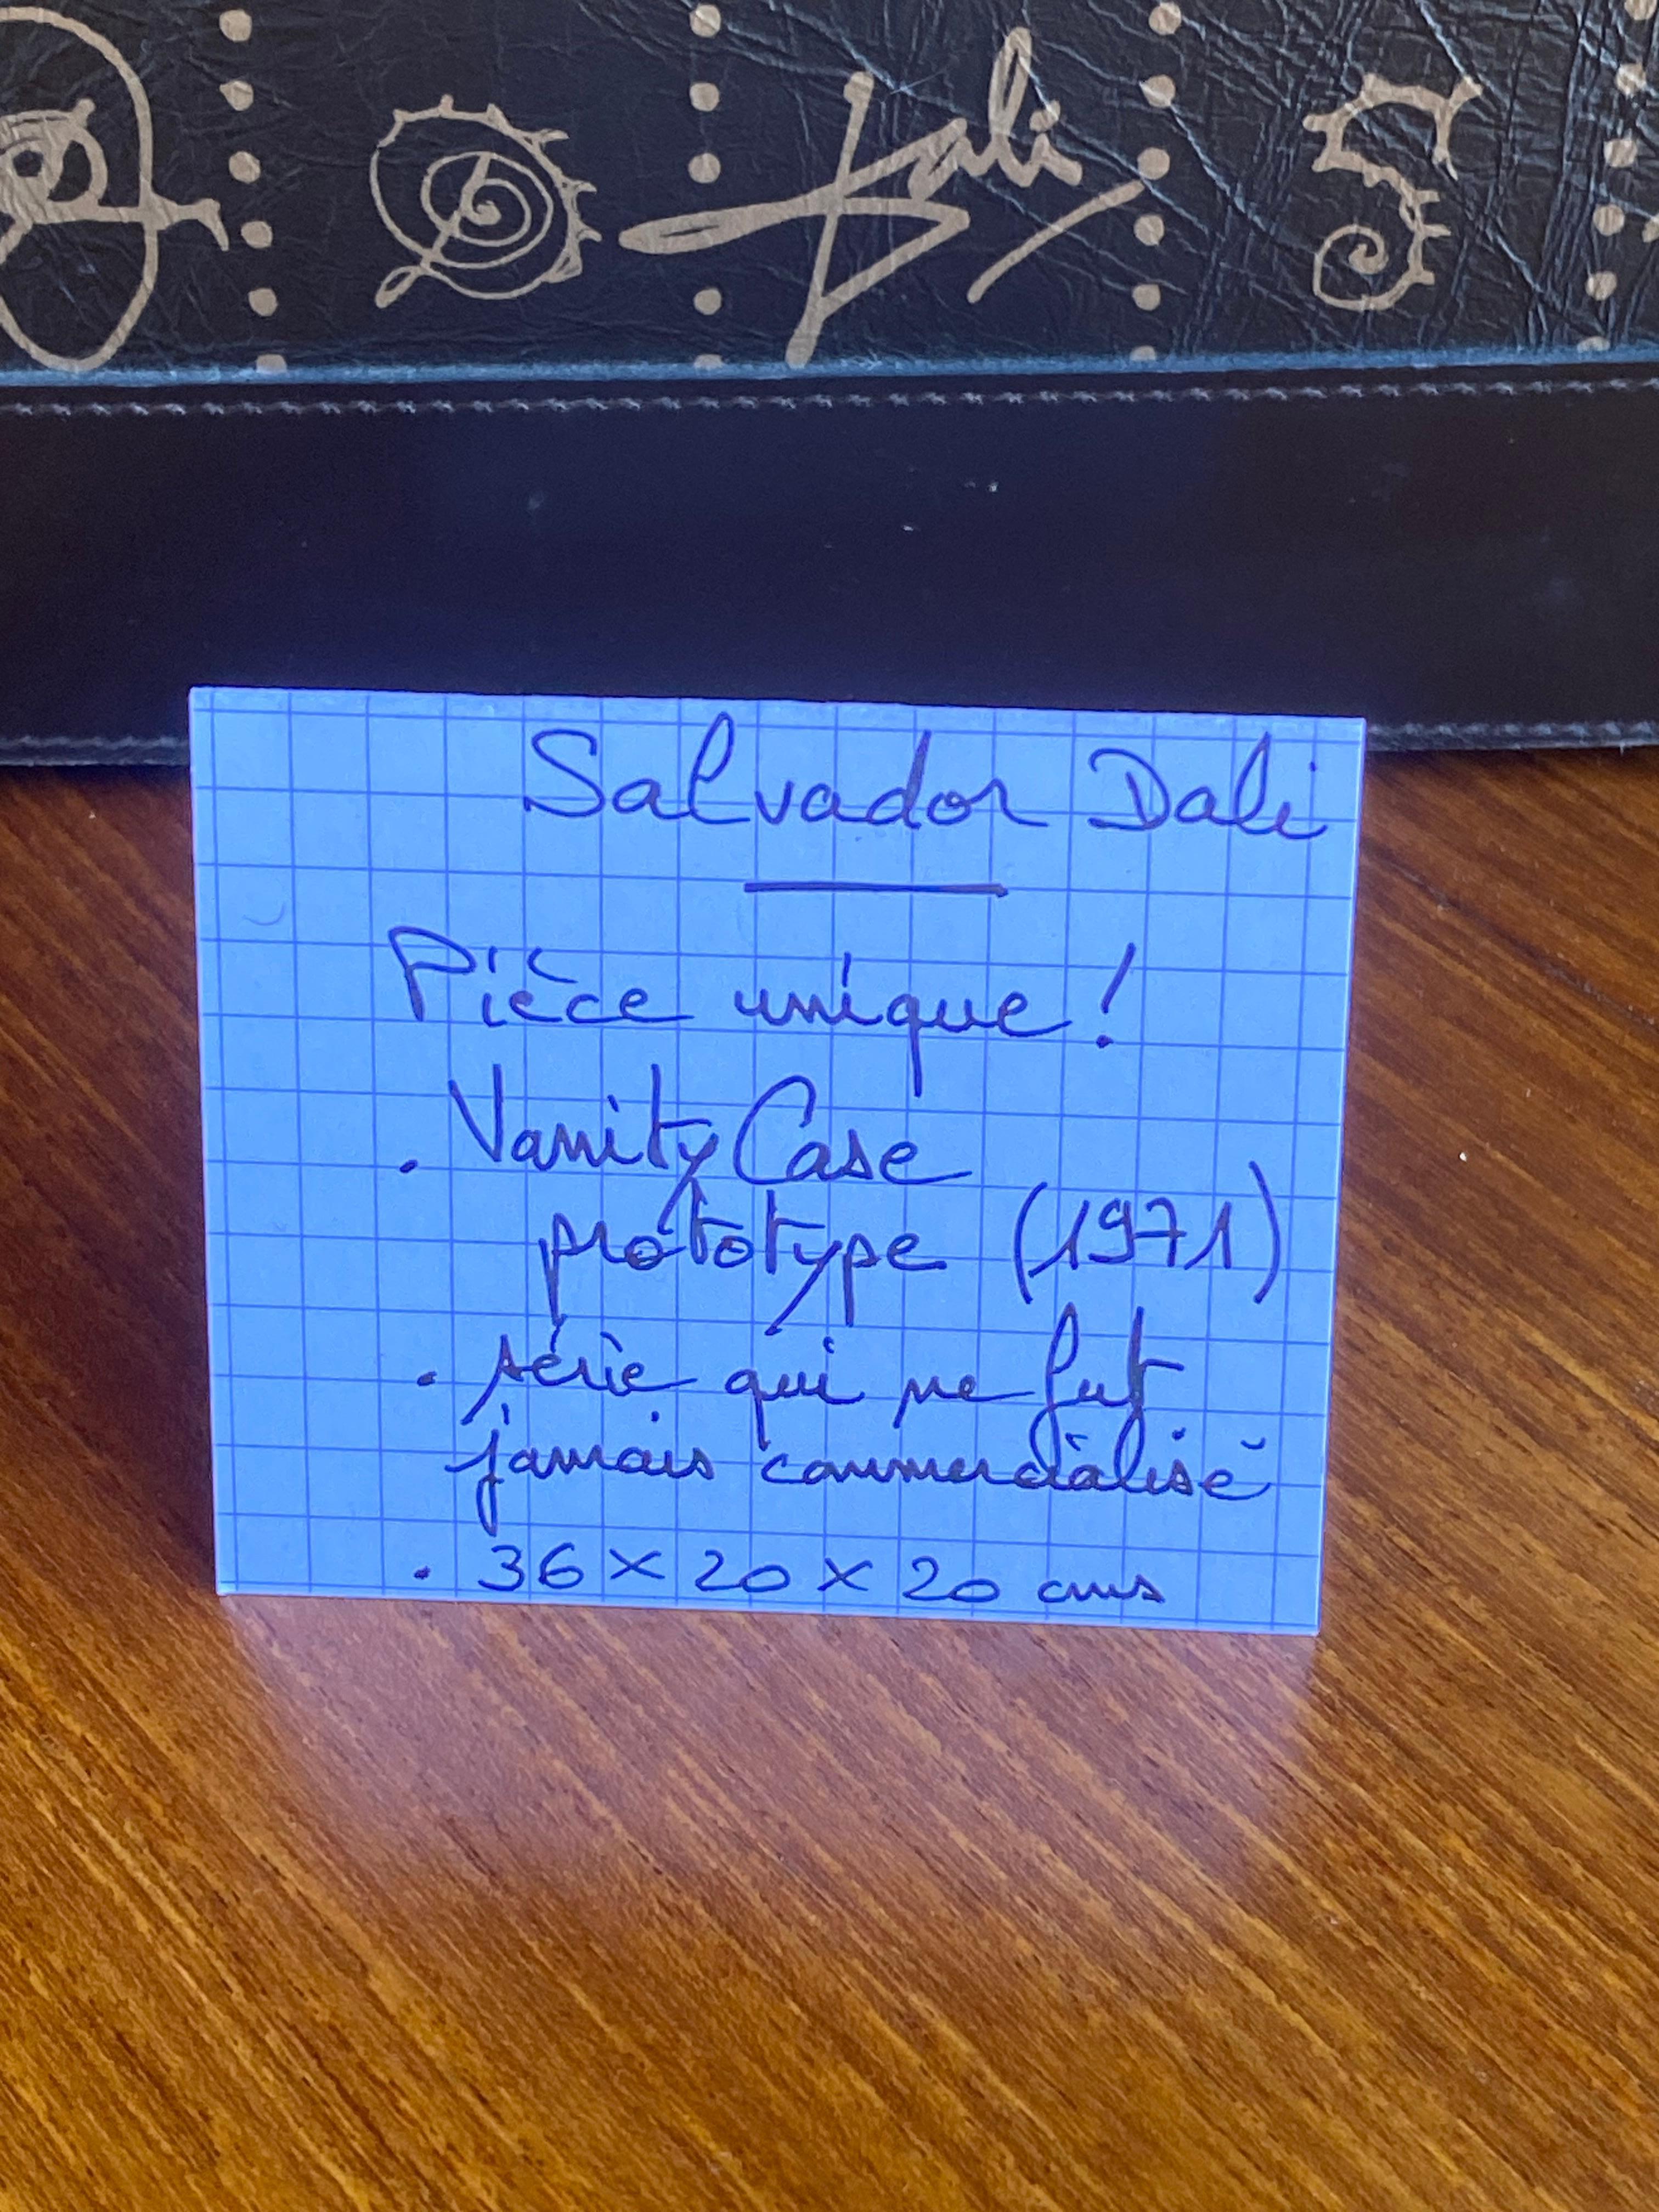 Dali
Salvador Dali
Pièce unique !
. Vanity Case
prototype (1971)
. série qui ne fut
jamais commercialisé
. 36 x 20 x 20 cms